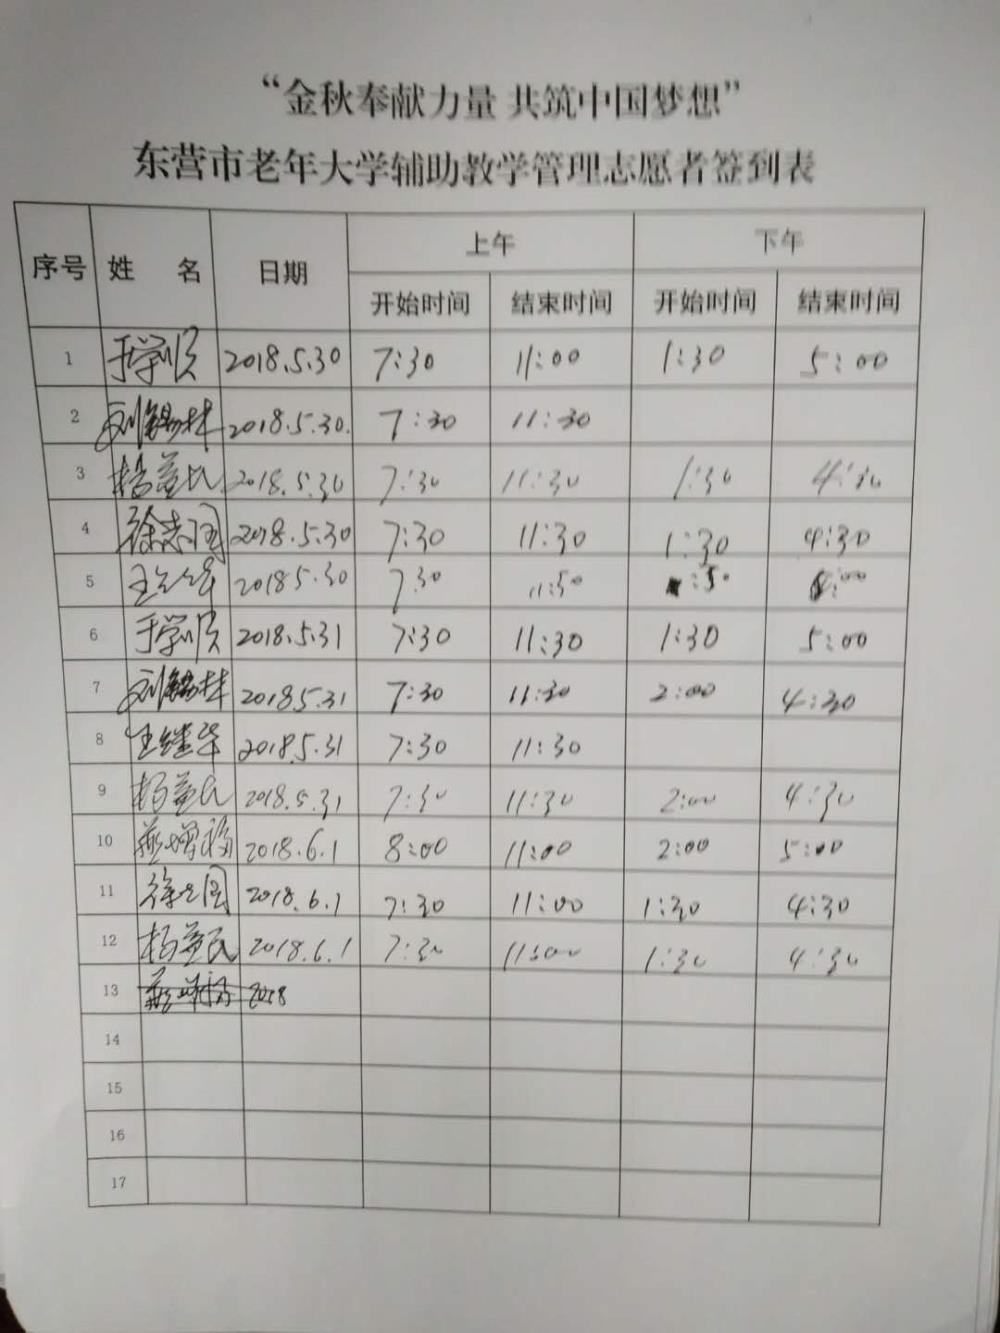 “金秋奉献力量 共筑中国梦想”
东营市老年大学辅助教学管理志愿者签到表
序号 姓 名 日期 上午 下午
开始时间 结束时间 开始时间 结束时间
1 于学顺 2018.5.30 7:30 11:00 1:30 5:00
2 刘锡林 2018.5.30. 7:30 11:30
3 杨益民 2018.5.30 7:30 11:30 1:30
4 徐志国 2018.5.30 7:30 11:30 1:30 4:30
5 2018 5.30 7:30
6 于学顺 2018.5.31 7:30 11:30 1:30 5:00
7 刘锡林 2018.5.31 7:30 11:30 2:00 4:30
8 王继华 2018.5.31 7:30 11:30
9 杨益民 2018.5.31 7:30 11:30 2:00 4:30
10 2018.6.1 8:00 11:00 2:00 5:00
11 2018.6.1 7:30 11:00 1:30 4:30
12 杨益民 2018.6.1 7:30 11:00 1:30 4:30
13 2018
14
15
16
17